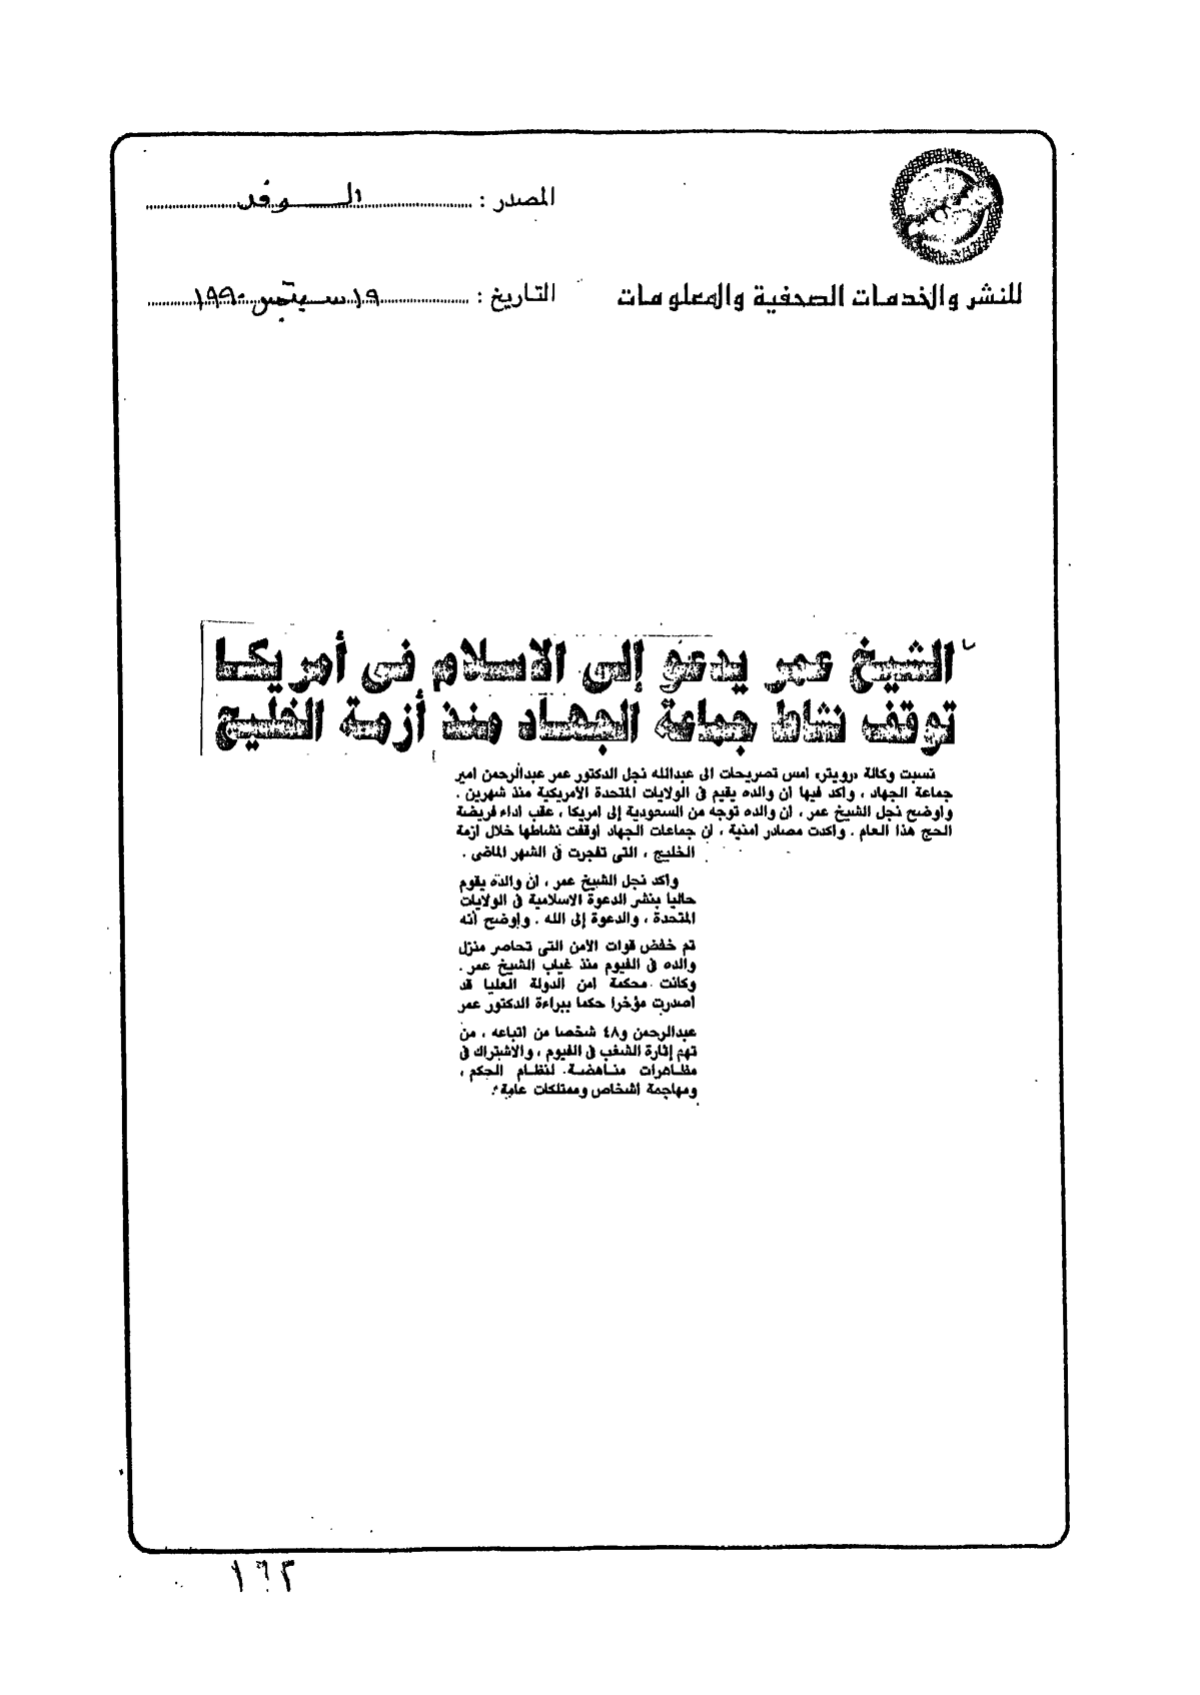 المصدر : الوفد
للنشر والخدمات الصحفية والمعلومات
التاريخ : ١٩ سبتمبر ١٩٩٠
الشيخ عمر يدعو إلى الاسلام فى أمريكا
توقف نشاط جماعة الجهاد منذ أزمة الخليج
نسبت وكالة «رويتر» امس تصريحات الى عبدالله نجل الدكتور عمر عبدالرحمن امير
جماعة الجهاد ، واكد فيها ان والده يقيم فى الولايات المتحدة الأمريكية منذ شهرين .
واوضح نجل الشيخ عمر ، ان والده توجه من السعودية إلى امريكا ، عقب اداء فريضة
الحج هذا العام . واكدت مصادر امنية ، ان جماعات الجهاد اوقفت نشاطها خلال ازمة
الخليج ، التى تفجرت فى الشهر الماضى .
واكد نجل الشيخ عمر ، ان والده يقوم
حاليا بنشر الدعوة الاسلامية فى الولايات
المتحدة ، والدعوة إلى الله . واوضح انه
تم خفض قوات الأمن التى تحاصر منزل
والده فى الفيوم منذ غياب الشيخ عمر .
وكانت محكمة امن الدولة العليا قد
اصدرت مؤخرا حكما ببراءة الدكتور عمر
عبدالرحمن و٤٨ شخصا من اتباعه ، من
تهم إثارة الشغب فى الفيوم ، والاشتراك فى
مظاهرات مناهضة لنظام الحكم ،
ومهاجمة اشخاص وممتلكات عامة .
١٦٣